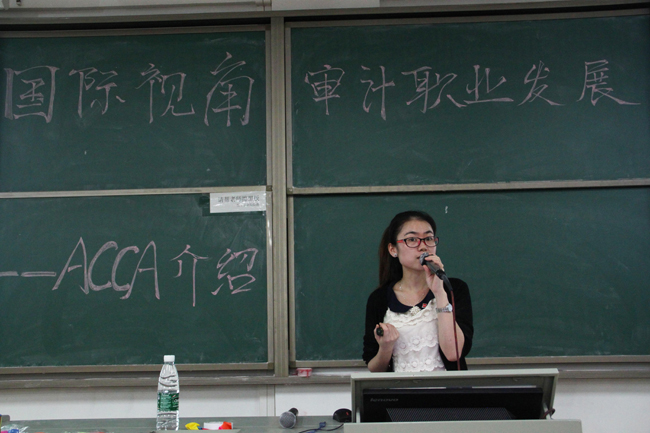 国际视角 审计职业发展
--ACCA介绍